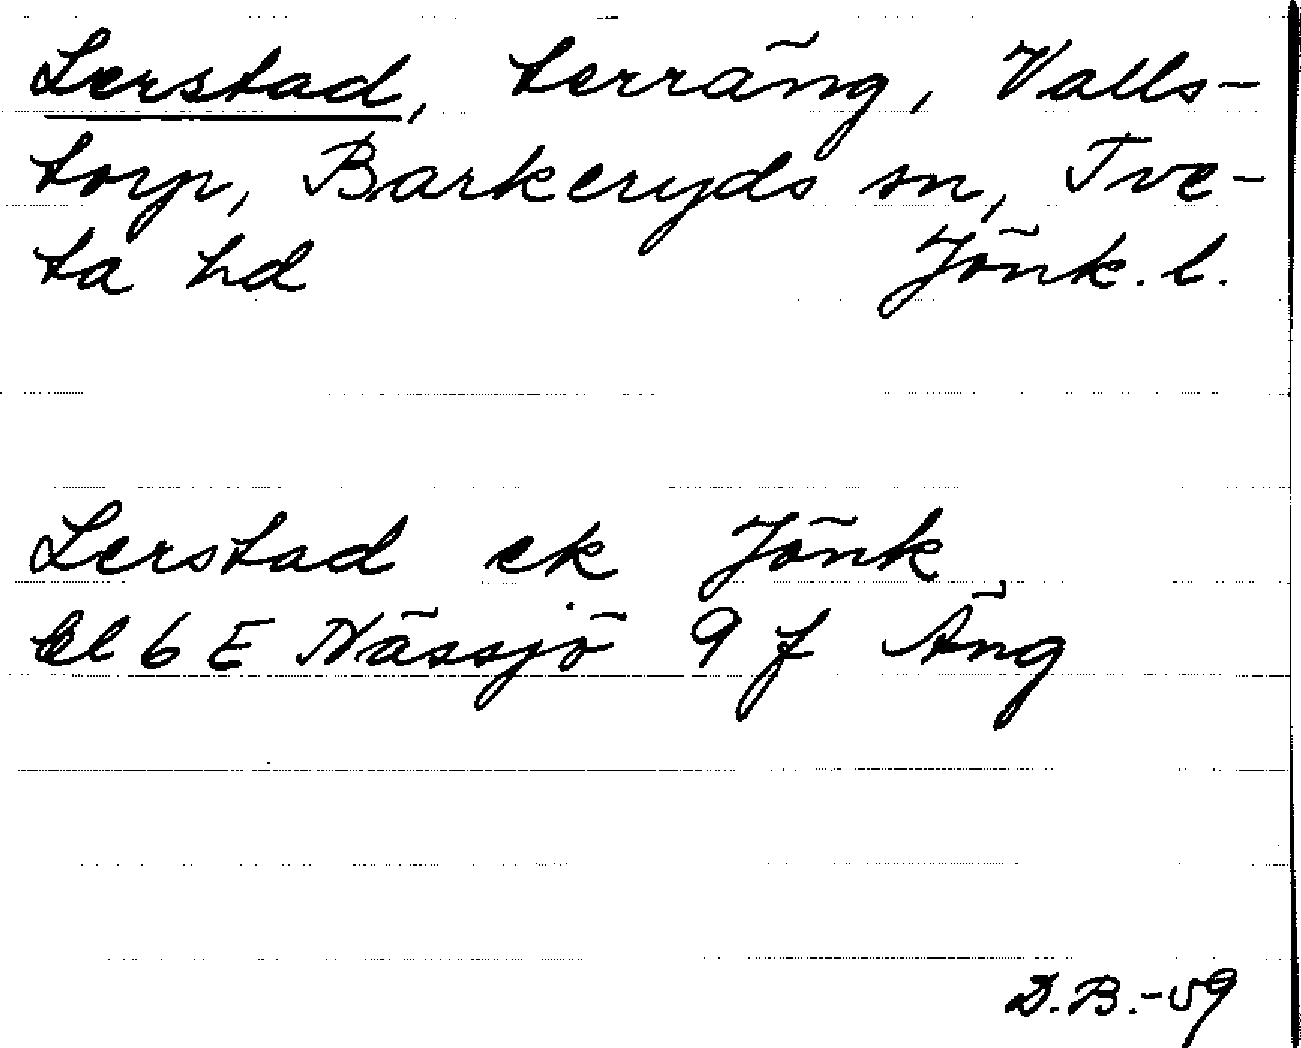 Lerstad, terräng, Valls-
torp, Barkeryds sn, Tve-
ta hd Jönk. l.
Lerstad ek Jönk
bl 6 E Nässjö 9 f Äng
D.B.-59